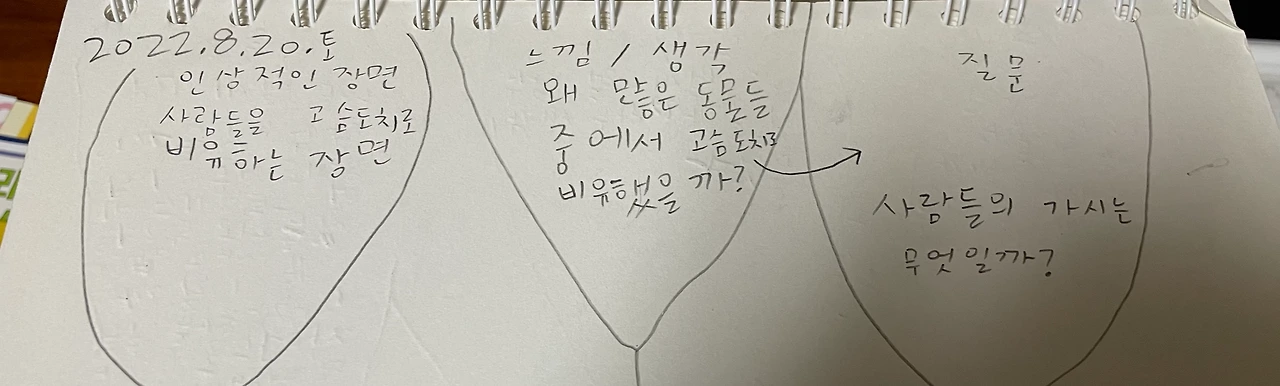 2022.8.20.토
인상적인 장면
사람들을 고슴도치로
비유하는 장면
느낌 / 생각
왜 많은 동물들
중에서 고슴도치로
비유했을까?
질문
사람들의 가시는
무엇일까?